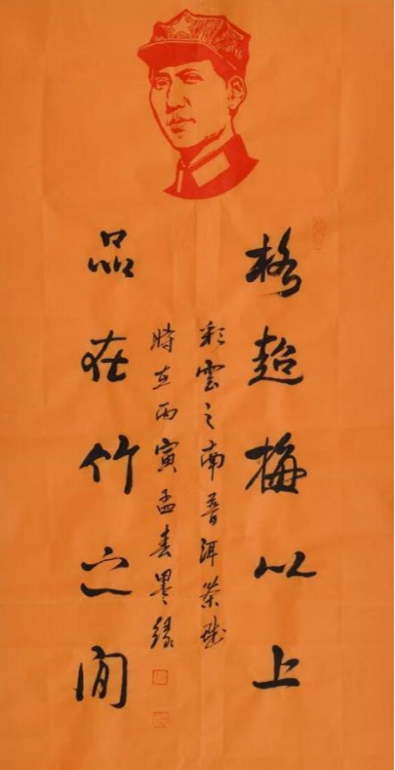 格超梅以上
品在竹之间
彩雲之南普洱茶
時在丙寅孟春墨緣